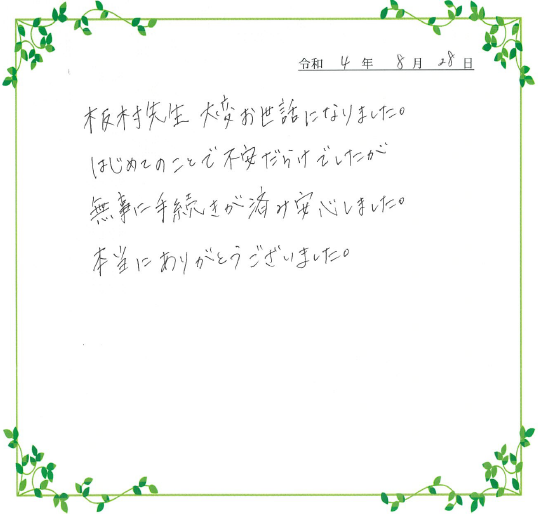 令和 4 年 8 月 28 日
板村先生 大変お世話になりました。
はじめてのことで不安だらけでしたが
無事に手続きが済み安心しました。
本当にありがとうございました。